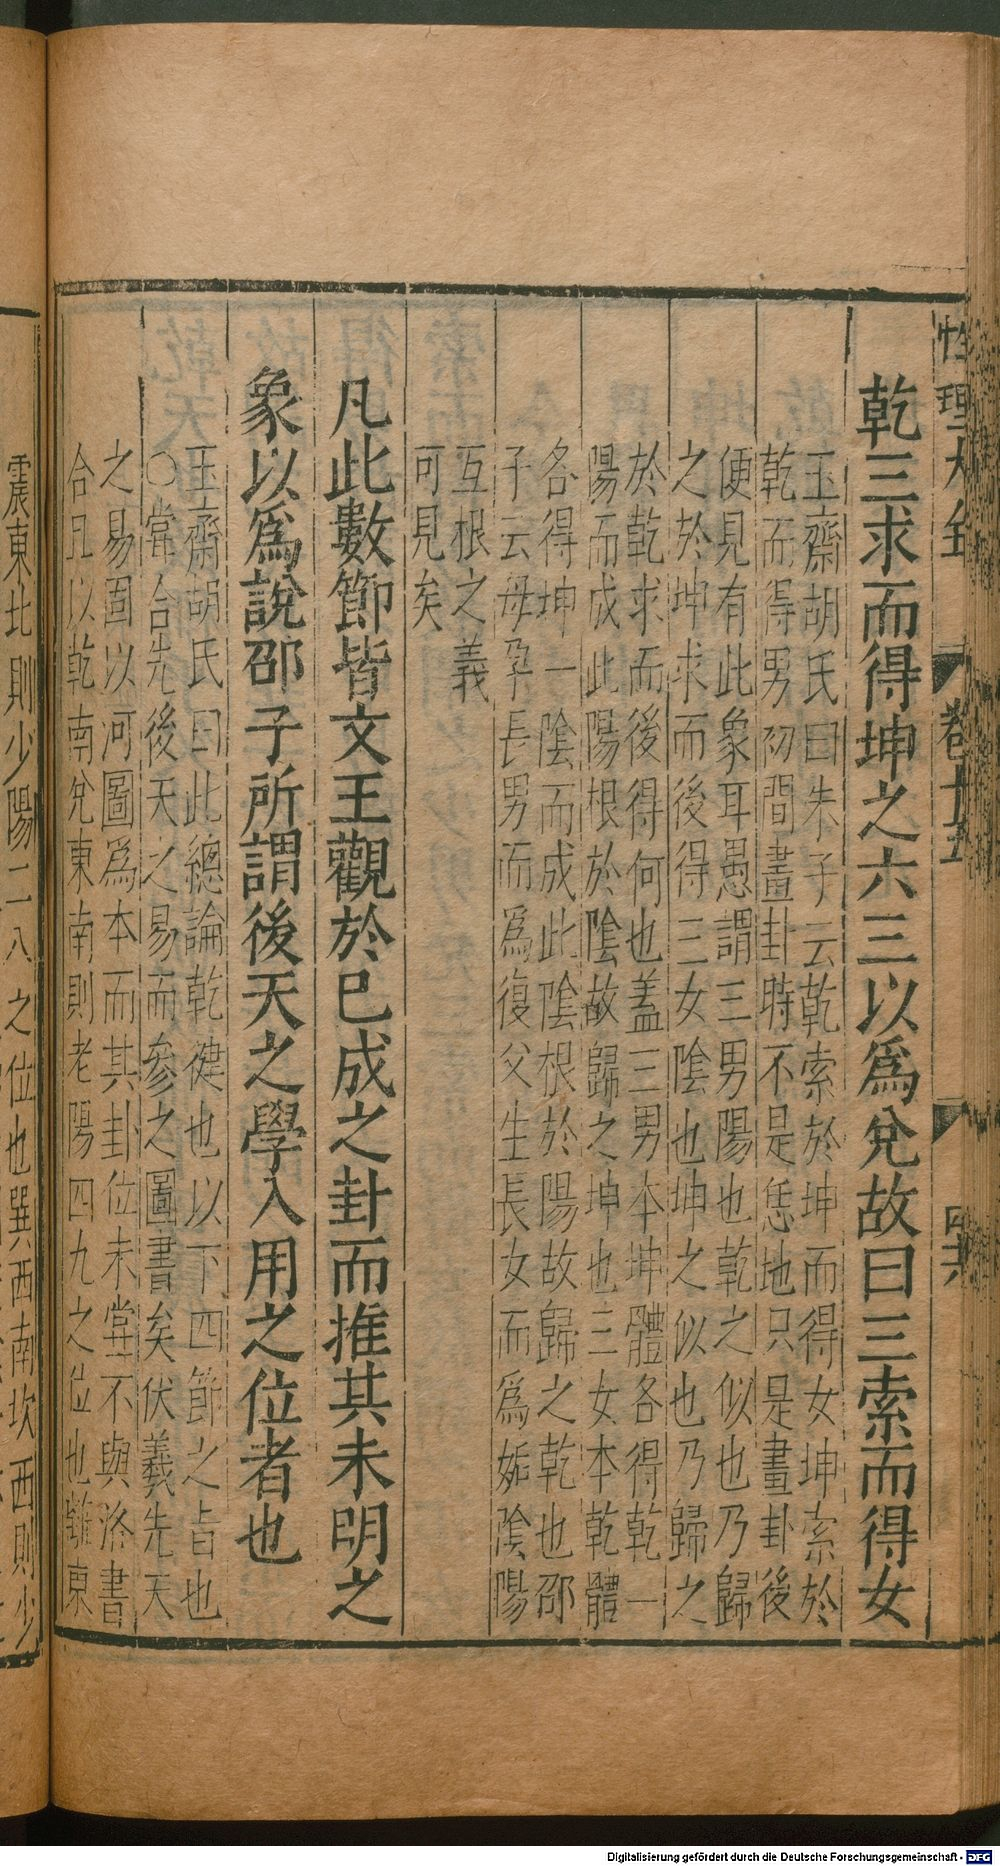 性理大全
卷十五
四六
乾三求而得坤之六三以爲兊故曰三索而得女
玉齋胡氏曰朱子云乾索於坤而得女坤索於
乾而得男初間畫卦時不是恁地只是畫卦後
便見有此象耳愚謂三男陽也乾之似也乃歸
之於坤求而後得三女陰也坤之似也乃歸之
於乾求而後得何也蓋三男本坤體各得乾一
陽而成此陽根於陰故歸之坤也三女本乾體
各得坤一陰而成此陰根於陽故歸之乾也邵
子云母孕長男而爲復父生長女而爲姤陰陽
互根之義
可見矣
凡此數節皆文王觀於已成之卦而推其未明之
象以爲說邵子所謂後天之學入用之位者也
玉齋胡氏曰此總論乾健也以下四節之旨也
○嘗合先後天之易而參之圖書矣伏羲先天
之易固以河圖爲本而其卦位未嘗不與洛書
合且以乾南兊東南則老陽四九之位也離東
震東北則少陽二八之位也巽西南坎西則少
Digitalisierung gefördert durch die Deutsche Forschungsgemeinschaft - DFG